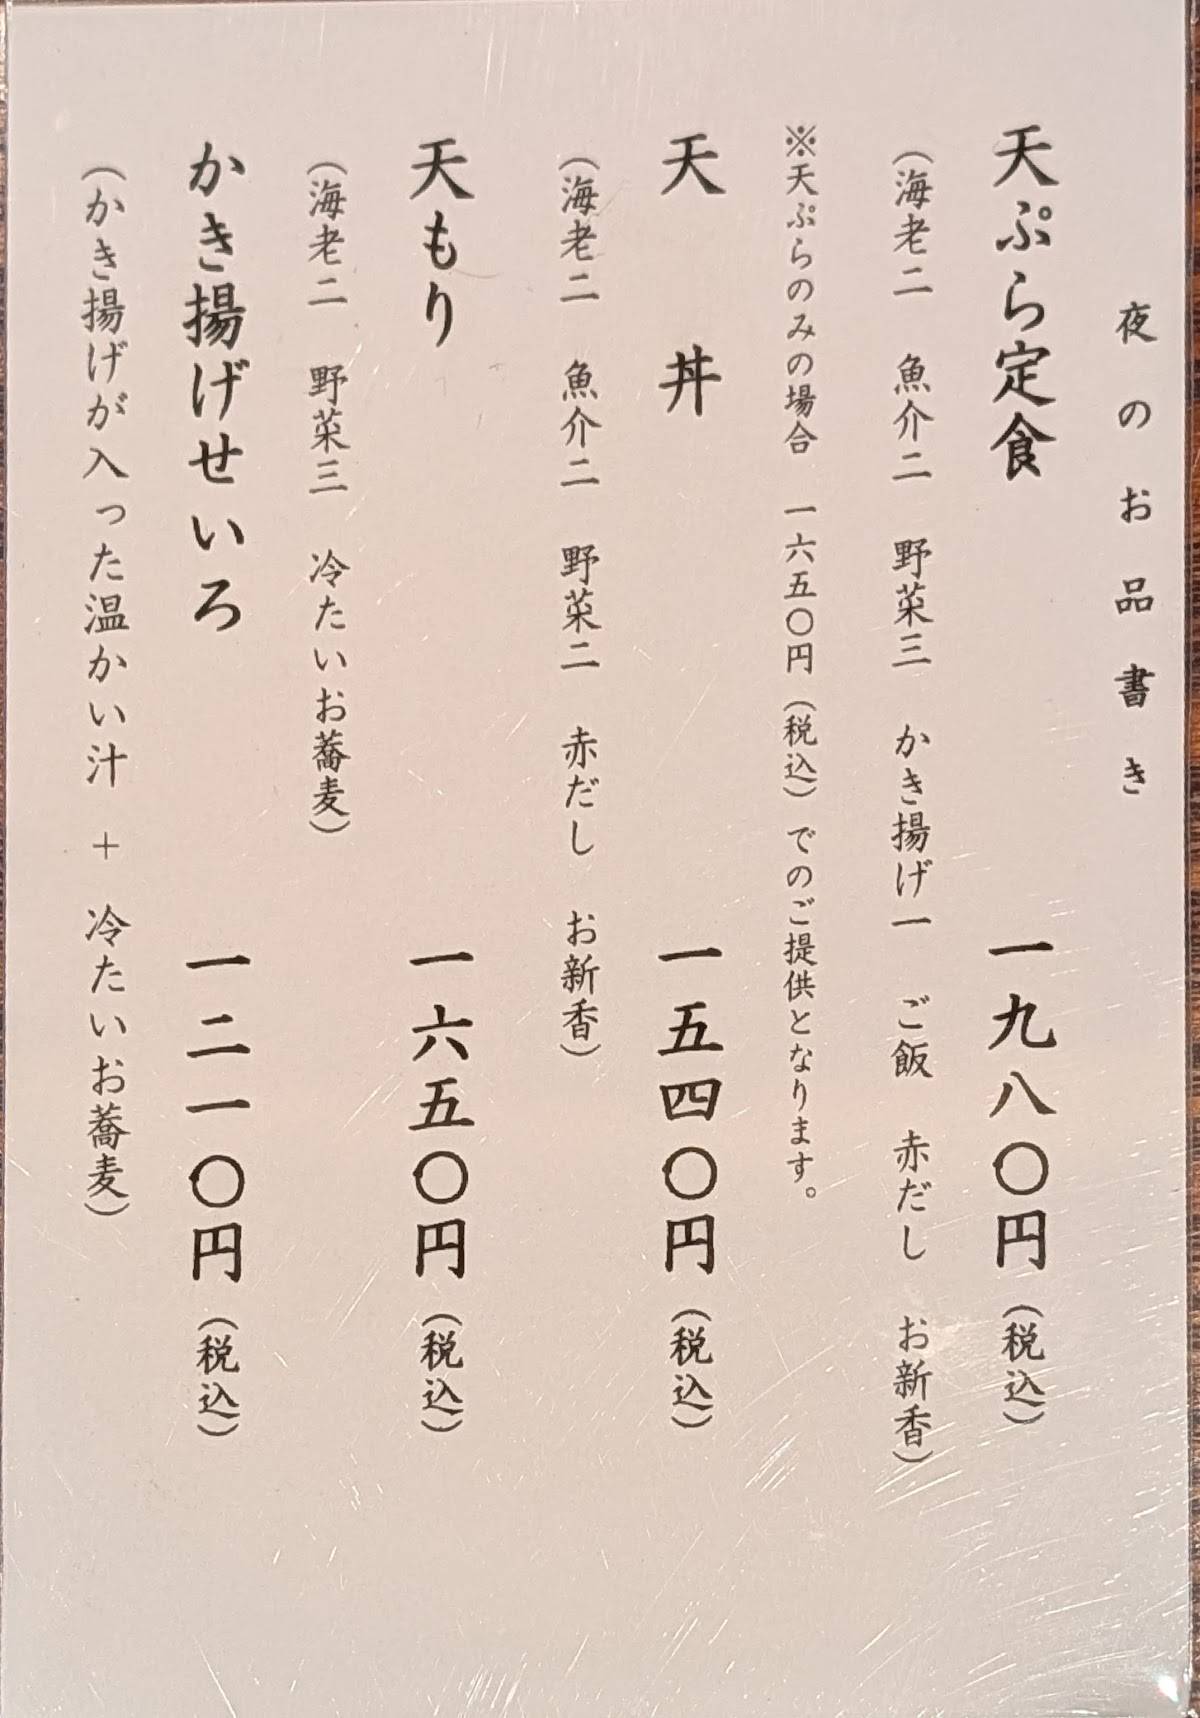 夜のお品書き
天ぷら定食 一九八〇円（税込）
（海老二 魚介二 野菜三 かき揚げ一 ご飯 赤だし お新香）
※天ぷらのみの場合 一六五〇円（税込）でのご提供となります。
天 丼 一五四〇円（税込）
（海老二 魚介二 野菜二 赤だし お新香）
天もり 一六五〇円（税込）
（海老二 野菜三 冷たいお蕎麦）
かき揚げせいろ 一二一〇円（税込）
（かき揚げが入った温かい汁 + 冷たいお蕎麦）